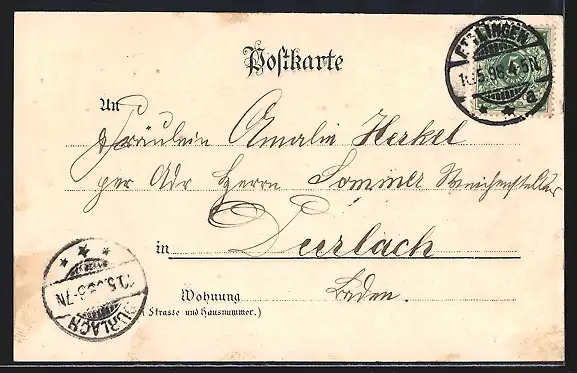 Postkarte
ETTLINGEN
5.98.4-5N.
An
Fräulein Amalie Herkel
per Adr Herrn Sommer Weichensteller
in Durlach
Wohnung
(Strasse und Hausnummer.)
Baden.
5.98.6-7N
DURLACH